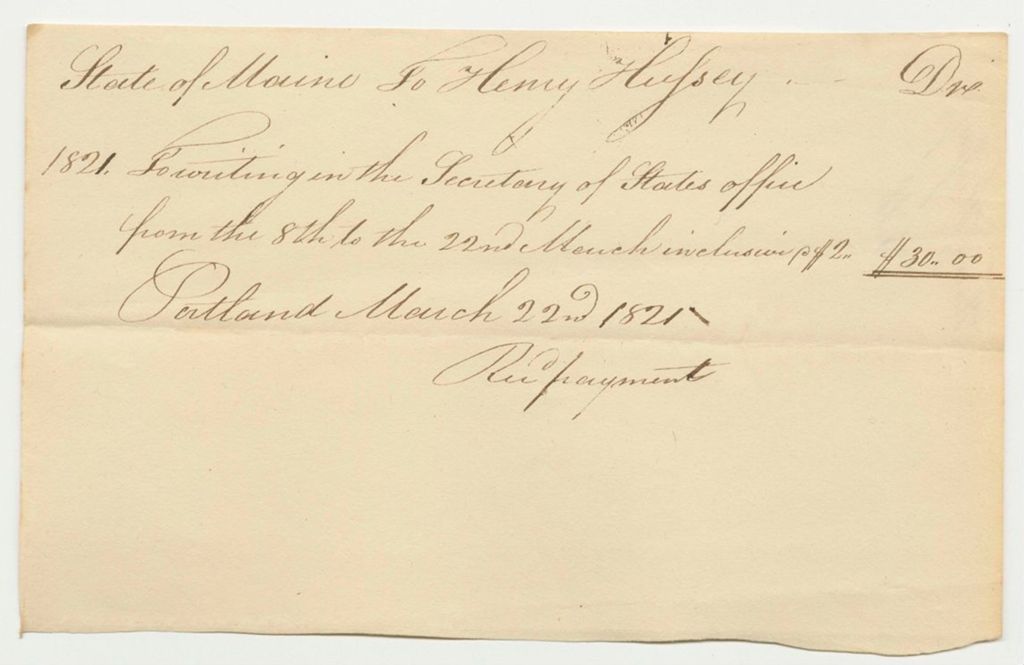 State of Maine To Henry Hussey Dr.
1821. To writing in the Secretary of States office
from the 8th to the 22nd March inclusive @ $2.. $30..00
Portland March 22nd 1821
Recd payment